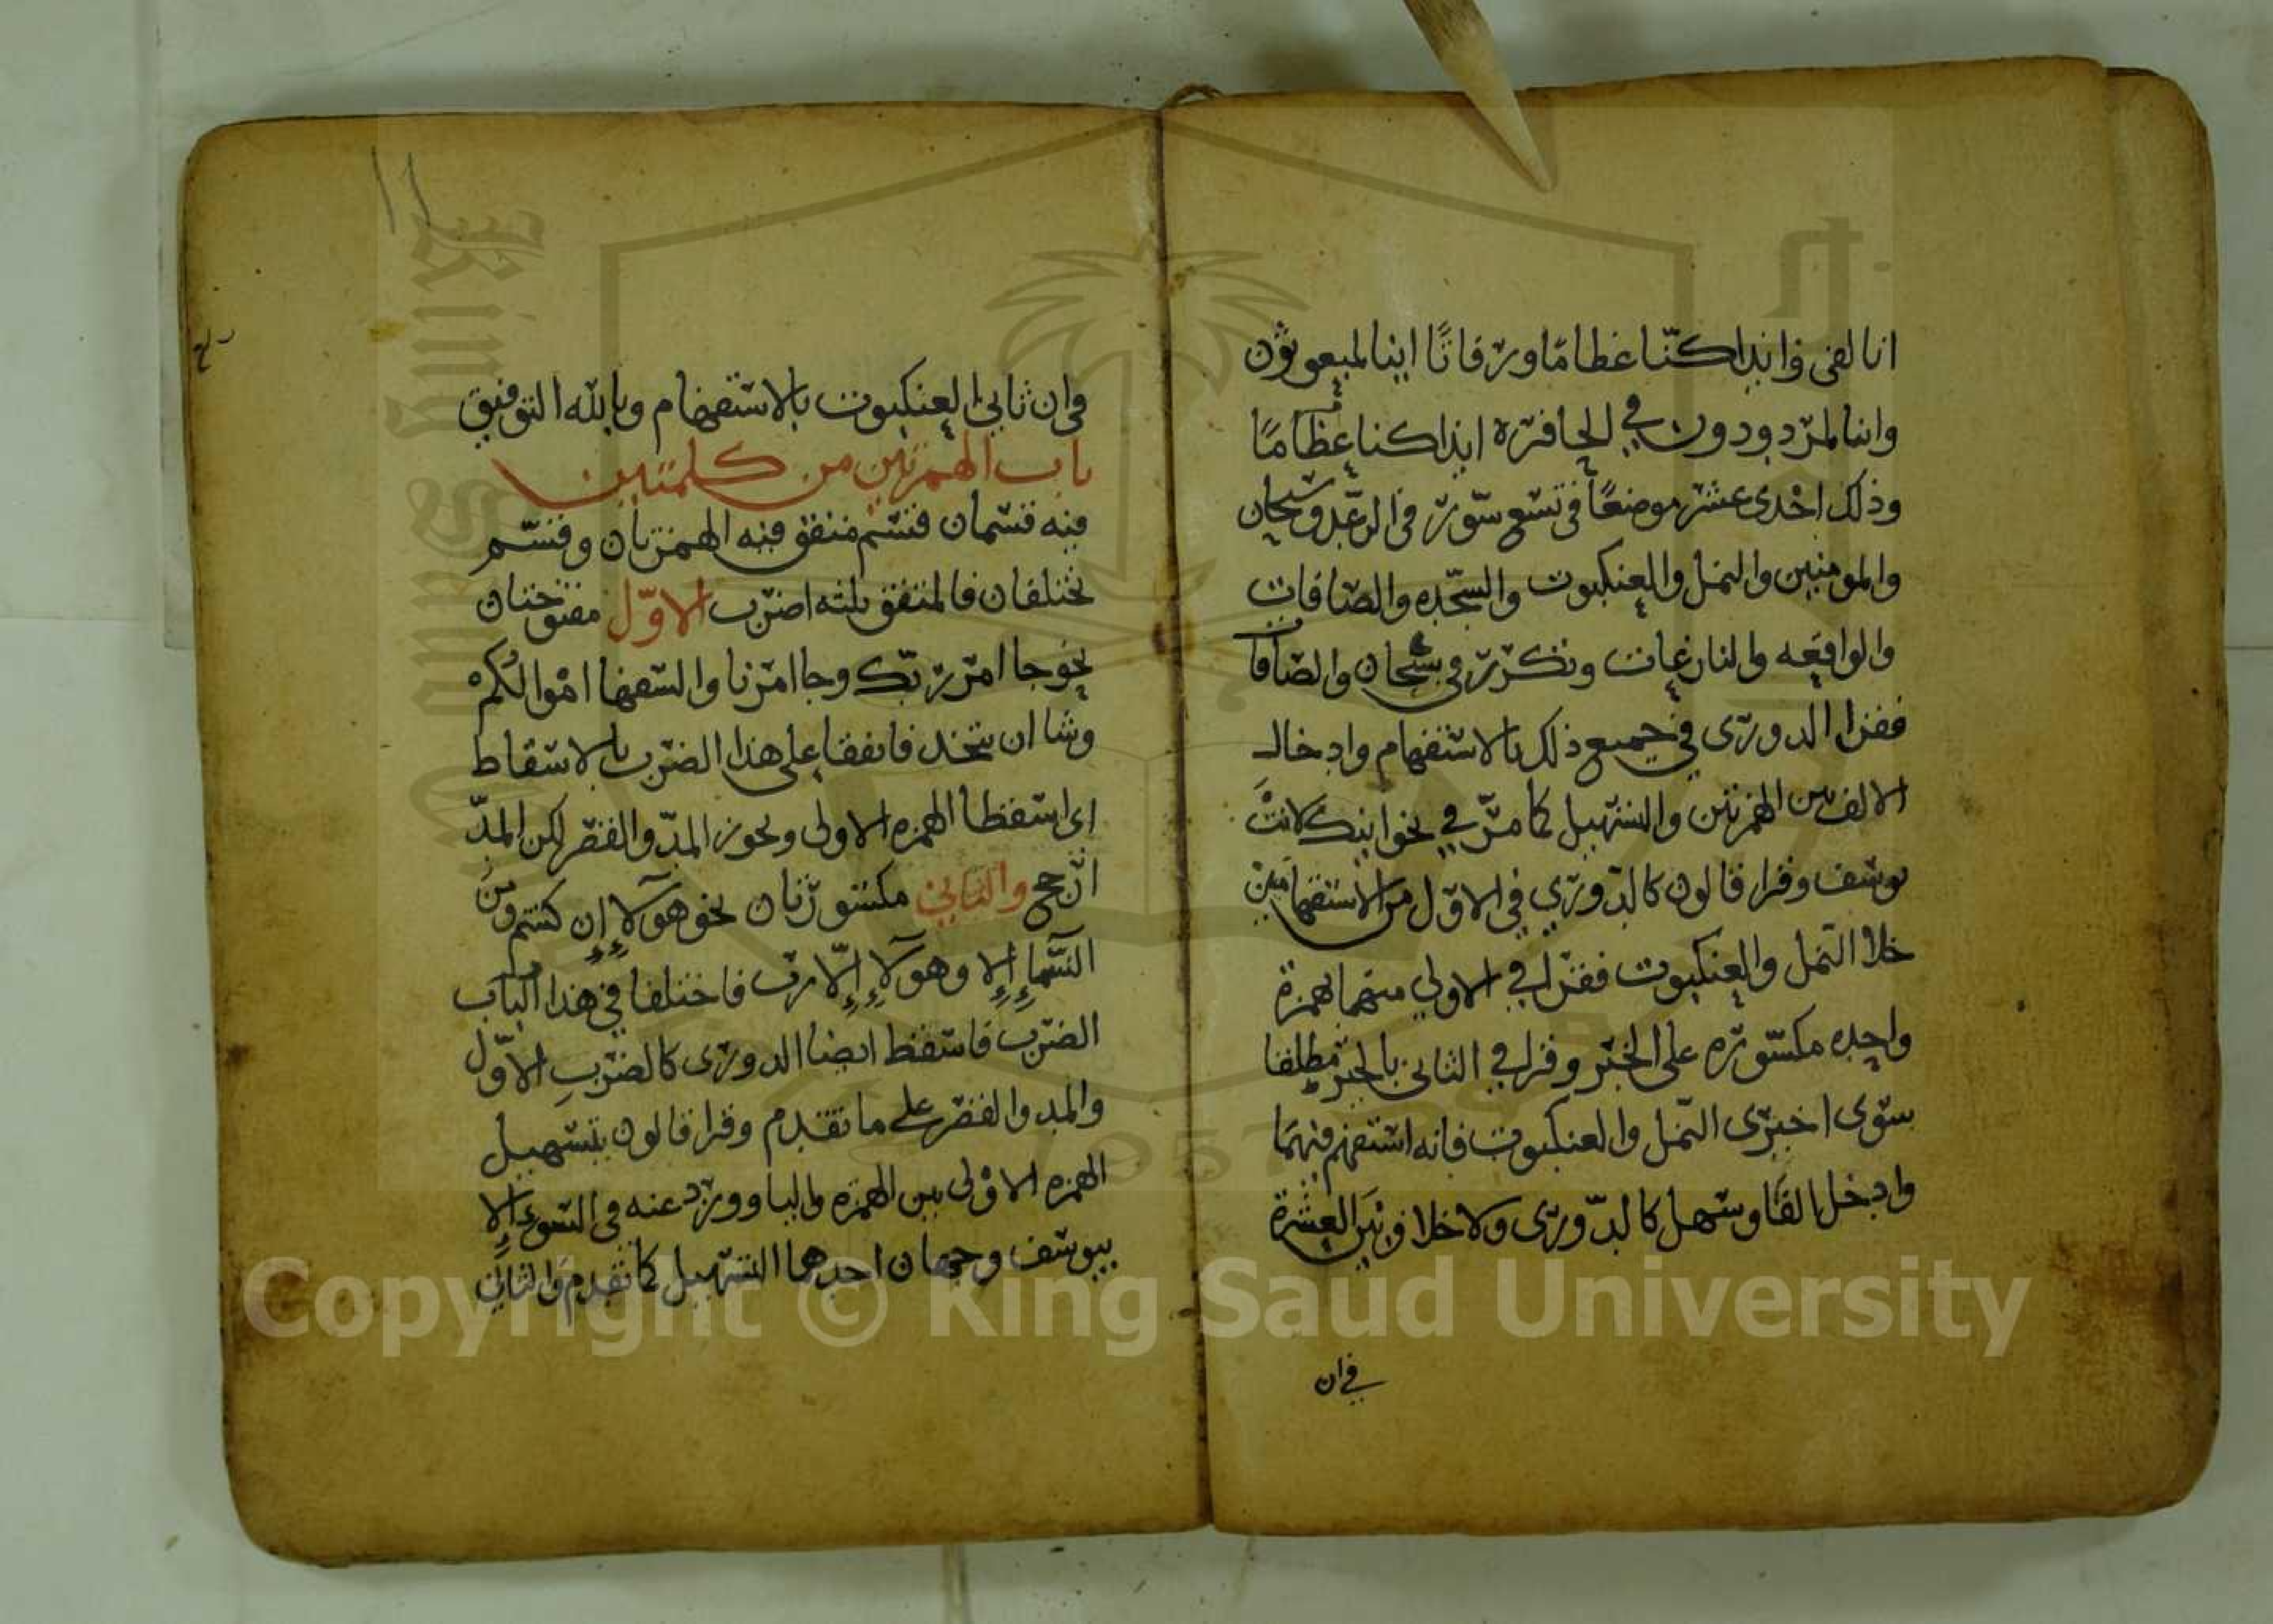 انا لفى وائذا كنّا عظامًا ورفاتًا اينا لمبعوثون
واينا لمردودون في الحافرة ايذا كنا عظامًا
وذلك احْدى عشر موضعًا في تسع سوّر في الرعد وسبحان
والمومنين والنمل والعنكبوت والسّجده والصّافات
والواقعه والنازعات وتكرر في سبحان والصّافات
فقرا الدورى في جميع ذلك بالاستفهام وادخال
الالف بين الهمزتين والتسهيل كما مرّ في نحو اينك لانتَ
يوسف وقرا قالون كالدّوري في الاوّل من الاستفهامين
خلا النّمل والعنكبوت فقرا في الاولي منهما بهمزة
واحده مكسّوره على الخبر وقرا في الثانى بالخبر مطلقا
سوى اخبرى النّمل والعنكبوت فانه استفهم فيهما
وادخل الفًا وسهل كالدّورى ولا خلاف بين العشرة
في ان
١١
في ان ثاني العنكبوت بالاستفهام وبالله التوفيق
باب الهمزتين من كلمتين
فيه قسمان قسم متفق فيه الهمزتان وقسّم
تختلفان فالمتفق ثلثه اضرب الاوّل مفتوحتان
نحو جا امر ربّك وجا امرنا والسّفها امْوالكُمْ
وشا ان يتخذ فاتفقا على هذا الضرب بالاسقاط
اى اسقطا الهمزه الاولى ويجوز المدّ والقصر لكن المدّ
ارجح والثاني مكسورتان نحو هوٓلآءِ إِن كنتم ومن
السَّمآءِ إِلا وهوٓلآءِ إِلّا رب فاختلفا في هذا الباب
الضرب فاسقط ايضا الدورى كالضرب الاوّل
والمد والقصر على ما تقدم وقرا قالون بتسهيل
الهمزه الاوْلى بين الهمزه واليا وورد عنه في السّوء الا
بيوسف وجهان احدهما التسهيل كما تقدم والثاني
Copyright © King Saud University
King Saud University
1957